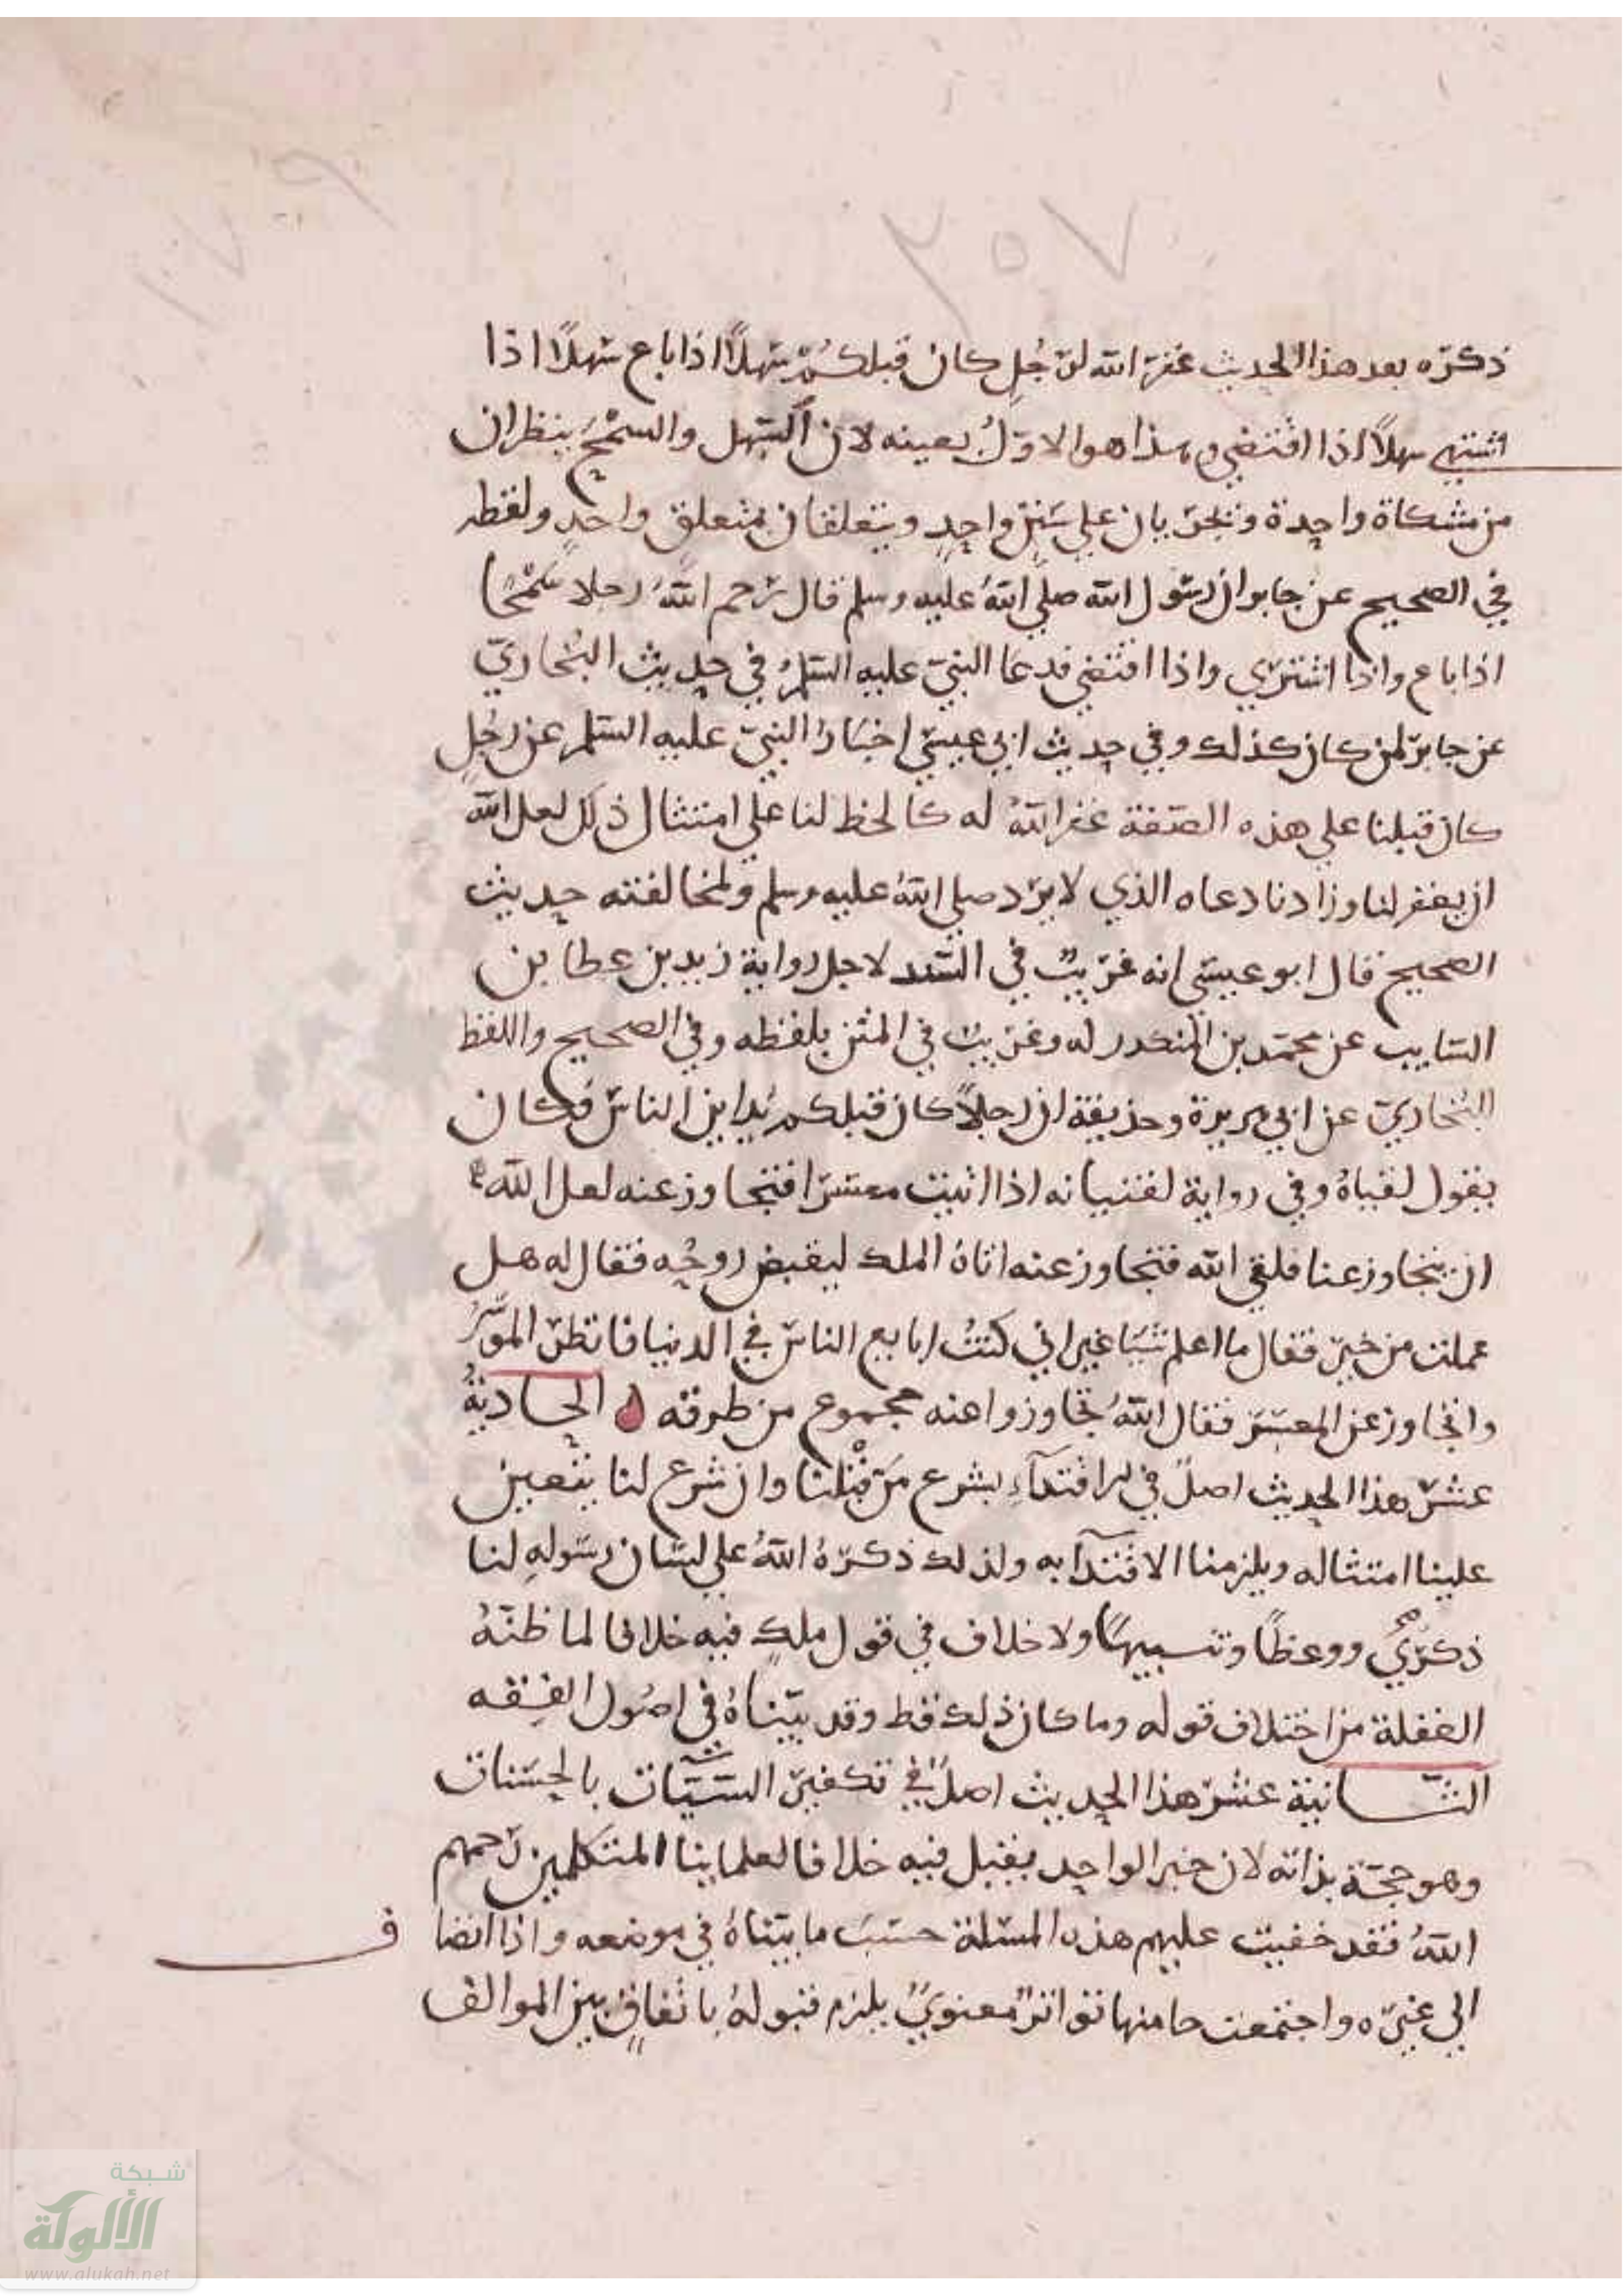 ٢٥٧
١٧٩
ذكره بعد هذا الحديث غفر الله لرجل كان قبلكم سهلًا اذا باع سهلًا اذا
اشتري سهلًا اذا اقتضي وهذا هو الاول بعينه لان السهل والسمح ينظران
من مشكاة واحدة ويجريان علي سنن واحد ويتعلقان بمتعلق واحد ولفظه
في الصحيح عن جابر ان رسول الله صلي الله عليه وسلم قال رحم الله رجلا سمحا
اذا باع واذا اشتري واذا اقتضي فدعا النبي عليه السلم في حديث البخاري
عن جابر لمن كان كذلك وفي حديث ابي عيسي اخبار النبي عليه السلم عن رجل
كان قبلنا علي هذه الصفة غفر الله له كالحظ لنا علي امتثال ذلك لعل الله
ان يغفر لنا وزادنا دعاه الذي لا يرد صلي الله عليه وسلم ولمخالفته حديث
الصحيح قال ابو عيسي انه غريب في السند لاجل رواية زيد بن عطا بن
السايب عن محمد بن المنكدر له وغريب في المتن بلفظه وفي الصحيح واللفظ
البخاري عن ابي هريرة وحذيفة ان رجلًا كان قبلكم يداين الناس فكان
يقول لفتاه وفي رواية لفتيانه اذا اتيت معسرا فتجاوز عنه لعل الله
ان يتجاوز عنا فلقي الله فتجاوز عنه اتاه الملك ليقبض روحه فقال له هل
عملت من خير فقال ما اعلم شيا غير اني كنت ابايع الناس في الدنيا فانظر الموسر
واتجاوز عن المعسر فقال الله تجاوزوا عنه مجموع من طرقه الحادية
عشر هذا الحديث اصل في الاقتداء بشرع من قبلنا وان شرع لنا يتعين
علينا امتثاله ويلزمنا الاقتدآ به ولذلك ذكره الله علي لسان رسوله لنا
ذكري ووعظًا وتنبيها ولا خلاف في قول ملك فيه خلافا لما ظنه
الغفلة من اختلاف قوله وما كان ذلك قط وقد بيناه في اصول الفقه
الثانية عشر هذا الحديث اصل في تكفير السيآت بالحسنات
وهو حجة بذاته لان خبر الواحد يقبل فيه خلافا لعلماينا المتكلمين رحمهم
الله فقد خفيت عليهم هذه المسلة حسب ما بيناه في موضعه واذا انضاف
الي غيره واجتمعت جا منها تواتر معنوي يلزم قبوله باتفاق بين الموالف
شبكة
الألوكة
www.alukah.net